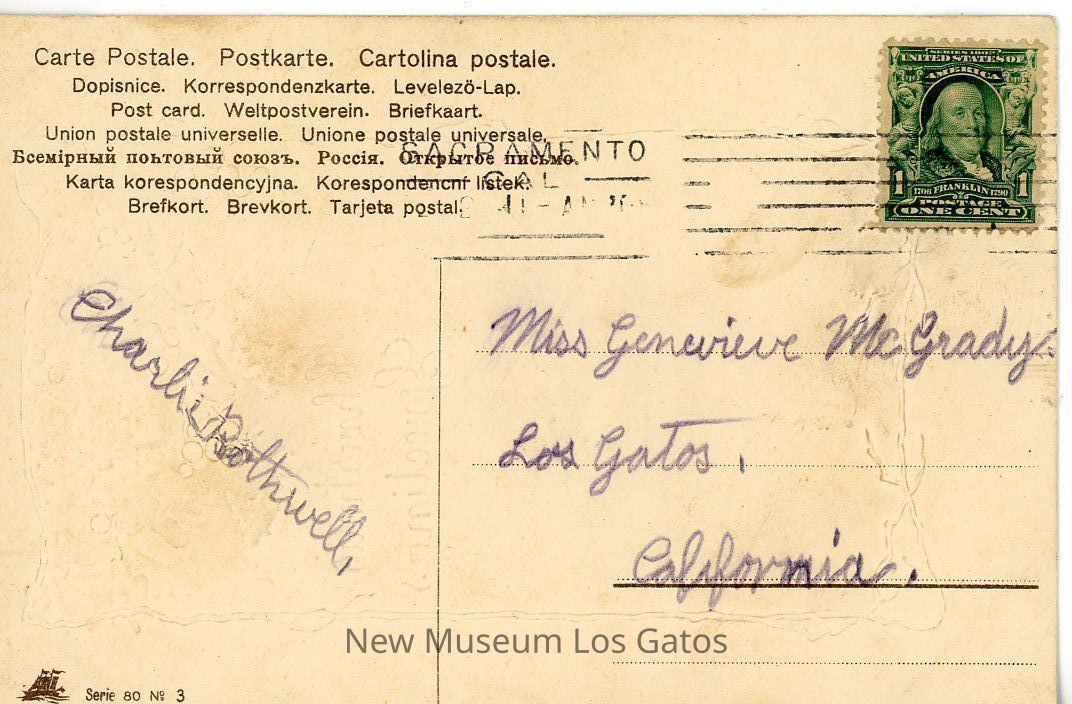 Carte Postale. Postkarte. Cartolina postale.
Dopisnice. Korrespondenzkarte. Levelező-Lap.
Post card. Weltpostverein. Briefkaart.
Union postale universelle. Unione postale universale.
Всемірный поьтовый союзъ. Россія. Открытое письмо.
Karta korespondencyjna. Korespondencní listek.
Brefkort. Brevkort. Tarjeta postal.
SACRAMENTO
CAL
SERIES 1902
UNITED STATES OF
AMERICA
1 1706 FRANKLIN 1790 1
POSTAGE
ONE CENT
Charlie Bothwell,
Miss Genevieve McGrady.
Los Gatos,
California.
New Museum Los Gatos
Serie 80 Nº 3